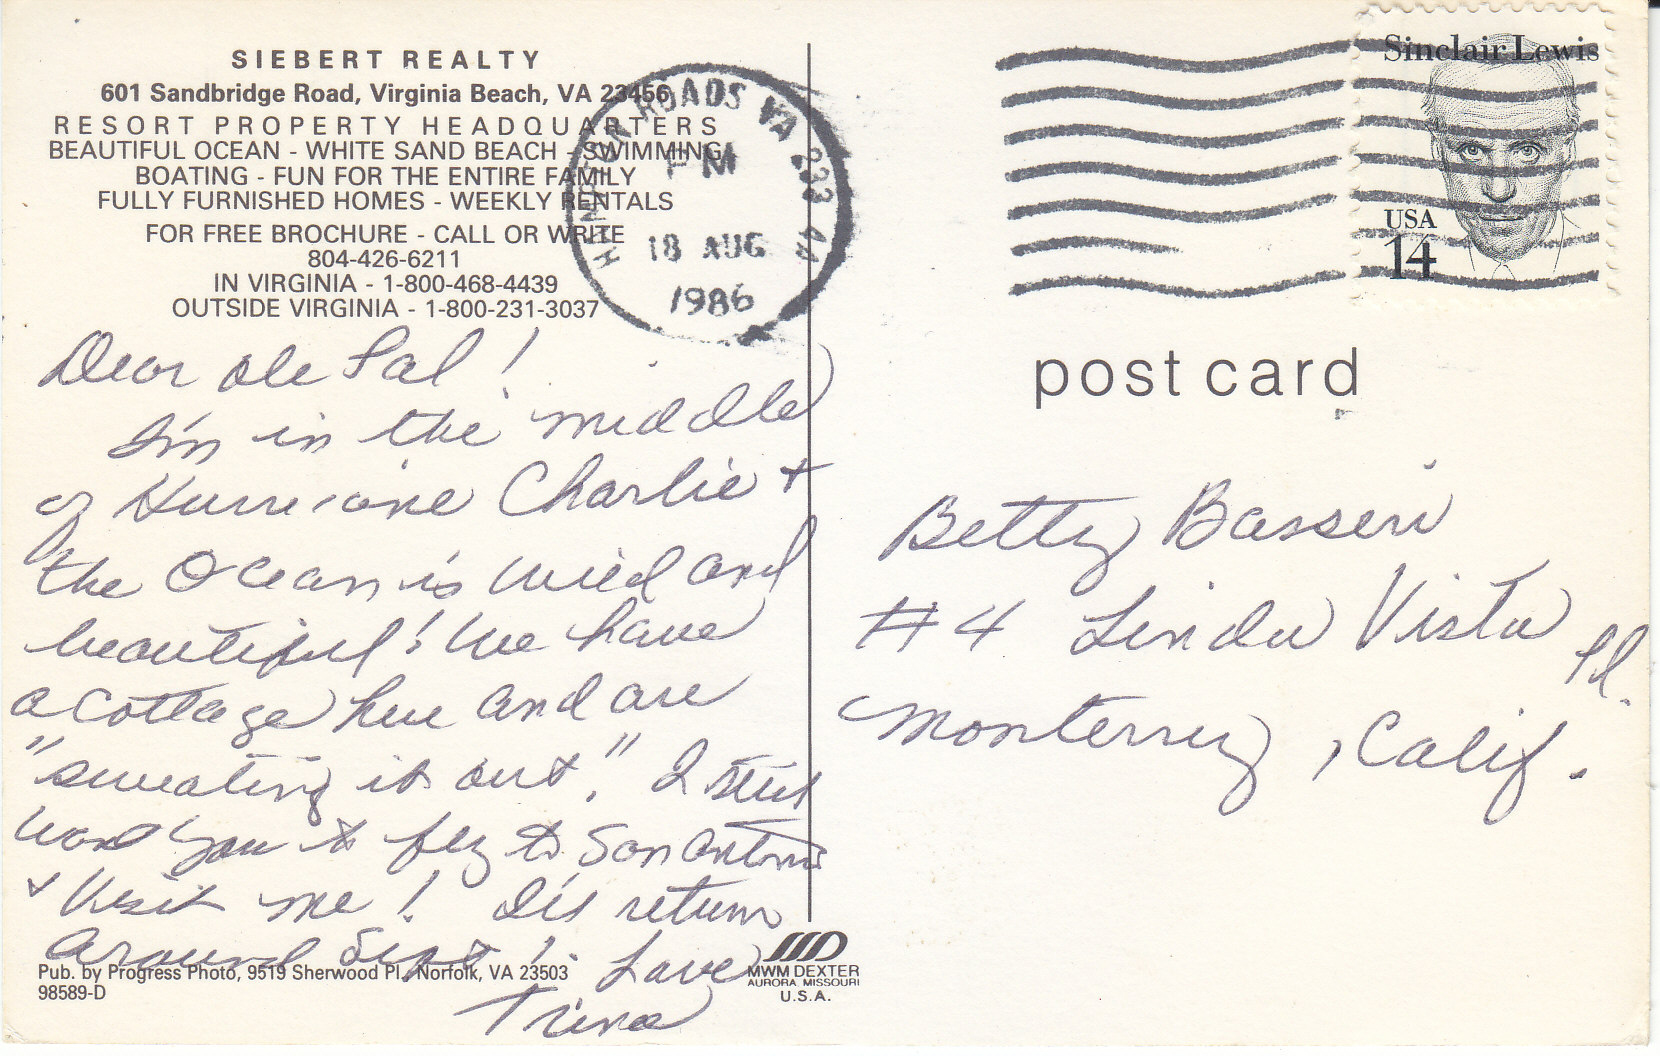 SIEBERT REALTY
601 Sandbridge Road, Virginia Beach, VA 23456
RESORT PROPERTY HEADQUARTERS
BEAUTIFUL OCEAN - WHITE SAND BEACH - SWIMMING
BOATING - FUN FOR THE ENTIRE FAMILY
FULLY FURNISHED HOMES - WEEKLY RENTALS
FOR FREE BROCHURE - CALL OR WRITE
804-426-6211
IN VIRGINIA - 1-800-468-4439
OUTSIDE VIRGINIA - 1-800-231-3037
Dear ole Pal!
I'm in the middle
of Hurricane Charlie +
the Ocean is wild and
beautiful! We have
a cottage here and are
"sweating it out". I still
want you to fly to San Antonio
+ visit me! I'll return
around Sept 1. Love
Trina
Pub. by Progress Photo, 9519 Sherwood Pl., Norfolk, VA 23503
98589-D
MWM DEXTER
AURORA, MISSOURI
U.S.A.
ROADS VA 233
PM
18 AUG
1986
Sinclair Lewis
USA
14
post card
Betty Basseri
#4 Linda Vista Pl.
Monterrey, Calif.